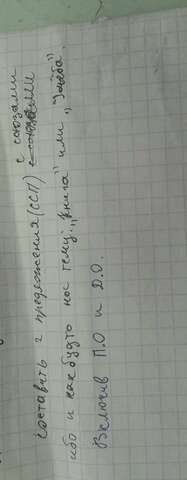 Составить 2 предложения (ССП) с союзами
ибо и как будто на тему: „Книга" или „Учёба".
Включив П.О и Д.О.